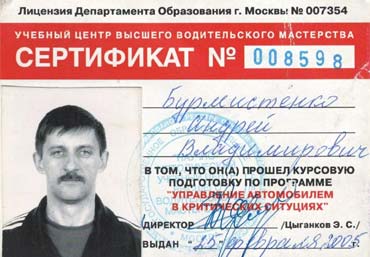 Лицензия Департамента Образования г. Москвы № 007354
УЧЕБНЫЙ ЦЕНТР ВЫСШЕГО ВОДИТЕЛЬСКОГО МАСТЕРСТВА
СЕРТИФИКАТ № 008598
Бурмистенко
Андрей
Владимирович
В ТОМ, ЧТО ОН(А) ПРОШЕЛ КУРСОВУЮ
ПОДГОТОВКУ ПО ПРОГРАММЕ
"УПРАВЛЕНИЕ АВТОМОБИЛЕМ
В КРИТИЧЕСКИХ СИТУЦИЯХ"
ДИРЕКТОР /Цыганков Э. С./
ВЫДАН "25" февраля 2005